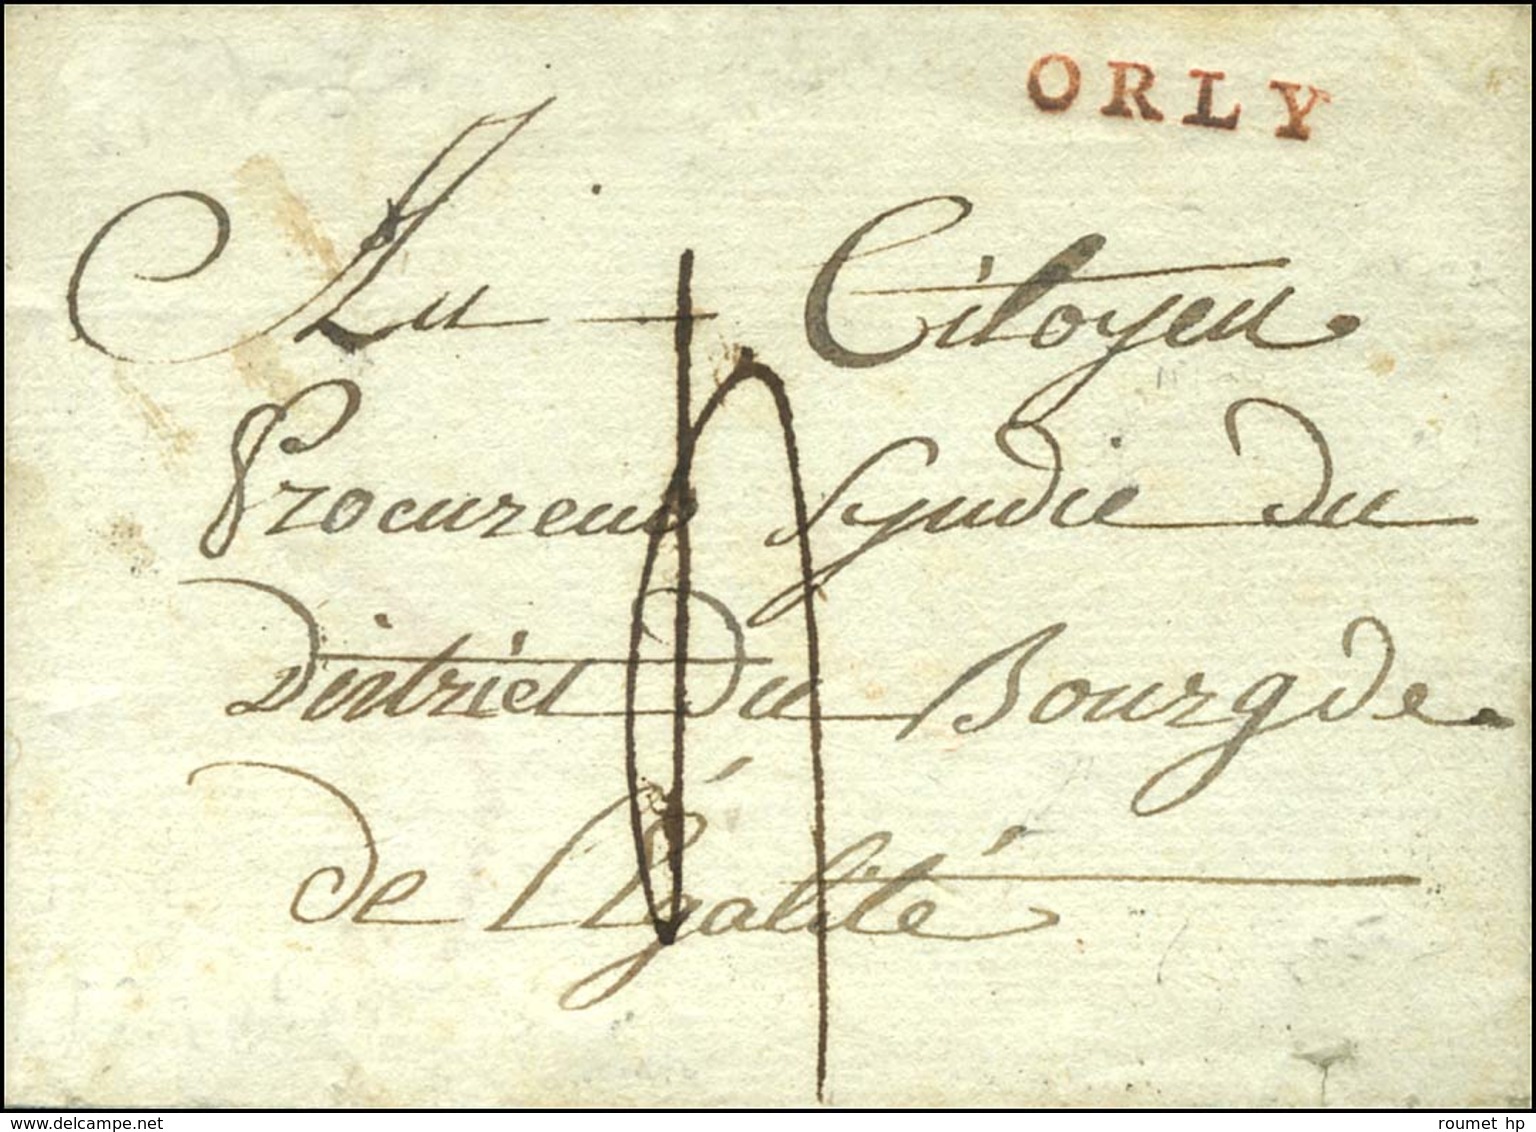 ORLY
Au Citoyen
Procureur Syndic du
District du Bourg de
de l'Égalité
www.delcampe.net
roumet hp